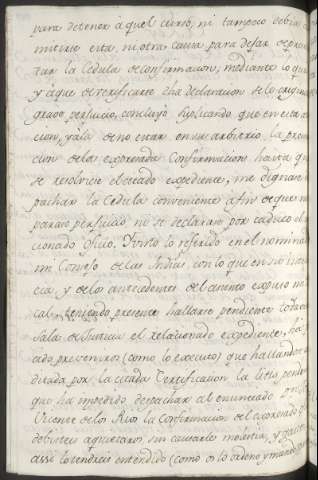 para detener aquel curso, ni tampoco debia
mitirse esta, ni otra causa para dejar de
la Cedula de confirmacion, mediante lo q.
y á que de verificarse dha declaracion se lo
gravo perjuicio, concluyó suplicando que en
cion, y á la de no estar en su arbitrio la
cion de la expresada Confirmacion hasta que
se resolviese el citado expediente, me dignase
pachar la Cedula conveniente á fin de que
parase perjuicio ni se declarase por caduco el
cionado oficio. Y visto lo referido en el
mi Consejo de las Indias, con lo que en su
cia, y de los antecedentes del asunto expuso mi
cal, teniendo presente hallarse pendiente
Sala de Justicia el relacionado expediente, há
ido preveniros (como lo executo) que hallandose
ditada por la citada Certificacion la litis
que ha impedido despachar al enunciado
Vicente de los Rios la Confirmacion del expresado
debisteis aquietaros sin causarle molestia, y
assi lo tendreis entendido (como os lo ordeno y mando